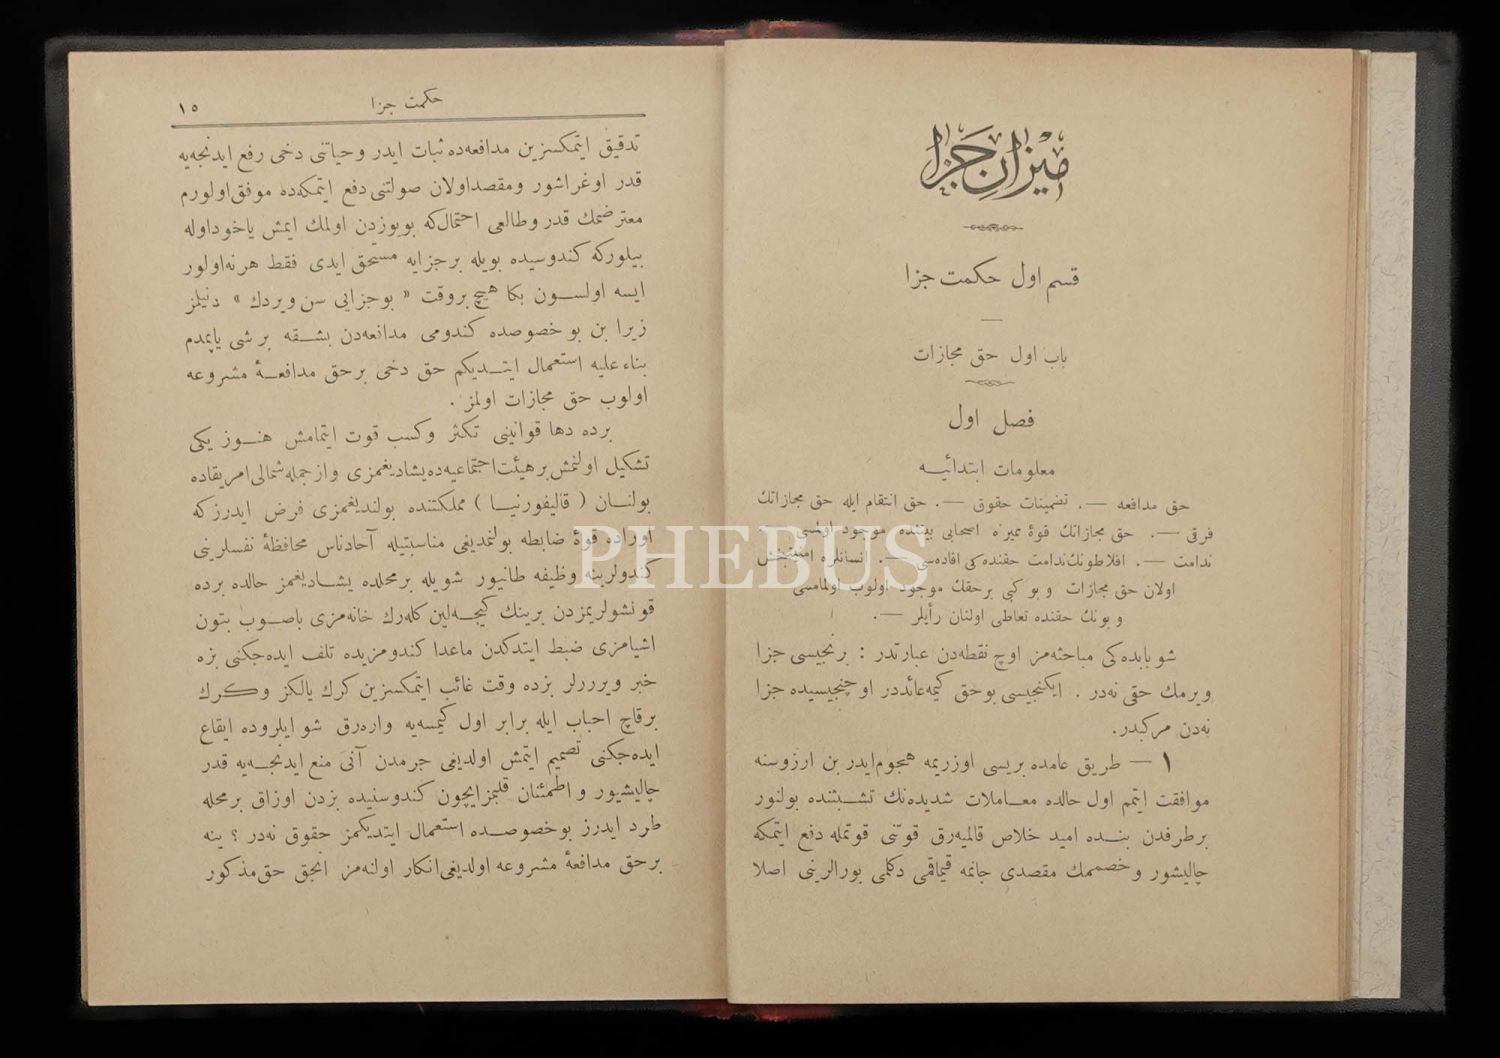 ميزان جزا
قسم اول حكمت جزا
باب اول حق مجازات
فصل اول
معلومات ابتدائيه
حق مدافعه —. تضمينات حقوق —. حق انتقام ايله حق مجازاتك
فرقى —. حق مجازاتك قوۀ مميزه اصحابى بيننده موجود اولمسى
ندامت —. افلاطونك ندامت حقنده كى افاده‌سى —. انسانلره
اولان حق مجازات و بو كبى بر حقك موجود اولوب اولمامسى
و بونك حقنده تعاطى اولنان رأيلر —.
شو بابده كى مباحثه‌مز اوچ نقطه‌دن عبارتدر : برنجيسى جزا
ويرمك حقى نه‌در . ايكنجيسى بو حق كيمه عائددر اوچنجيسيده جزا
نه‌دن مركبدر.
١ — طريق عامده بريسى اوزريمه هجوم ايدر بن ارزوسنه
موافقت ايتمم اول حالده معاملات شديده‌نك تشبثنده بولنور
بر طرفدن بنده اميد خلاص قالميه‌رق قوتنى قوتمله دفع ايتمكه
چاليشور و خصممك مقصدى جانمه قيماقمى دكلمى بورالرينى اصلا
حكمت جزا
١٥
تدقيق ايتمكسزين مدافعه‌ده ثبات ايدر و حياتنى دخى رفع ايدنجه‌يه
قدر اوغراشور و مقصد اولان صولتنى دفع ايتمكه‌ده موفق اولورم
معترضمك قدر و طالعى احتمال كه بو يوزدن اولمك ايمش ياخود اوله
بيلور كه كندوسيده بويله بر جزايه مستحق ايدى فقط هر نه اولور
ايسه اولسون بكا هيچ بر وقت « بو جزايى سن ويردك » دنيلمز
زيرا بن بو خصوصده كندومى مدافعه‌دن بشقه بر شى ياپمدم
بناء عليه استعمال ايتديكم حق دخى بر حق مدافعۀ مشروعه
اولوب حق مجازات اولمز .
برده دها قوانينى تكثر و كسب قوت ايتمامش هنوز يكى
تشكيل اولنمش بر هيئت اجتماعيه‌ده يشاديغمزى و از جمله شمالى امريقاده
بولنان ( قاليفورنيا ) مملكتنده بولنديغمزى فرض ايدرز كه
اوراده قوۀ ضابطه بولنمديغى مناسبتيله آحاد ناس محافظۀ نفسلرينى
كندولرينه وظيفه طانيور شويله بر محلده يشاديغمز حالده برده
قونشولريمزدن برينك كيجه‌لين كله‌رك خانه‌مزى باصوب بتون
اشيامزى ضبط ايتدكدن ماعدا كندومزيده تلف ايده‌جكنى بزه
خبر ويررلر بزده وقت غائب ايتمكسزين كرك يالكز و كرك
برقاچ احباب ايله برابر اول كيمسه‌يه واره‌رق شو ايلروده ايقاع
ايده‌جكنى تصميم ايتمش اولديغى جرمدن آنى منع ايدنجه‌يه قدر
چاليشيور و اطمئنان قلبمز ايچون كندوسنيده بزدن اوزاق بر محله
طرد ايدرز بو خصوصده استعمال ايتديكمز حقوق نه‌در ؟ ينه
بر حق مدافعۀ مشروعه اولديغى انكار اولنه‌مز انجق حق مذكور
PHEBUS